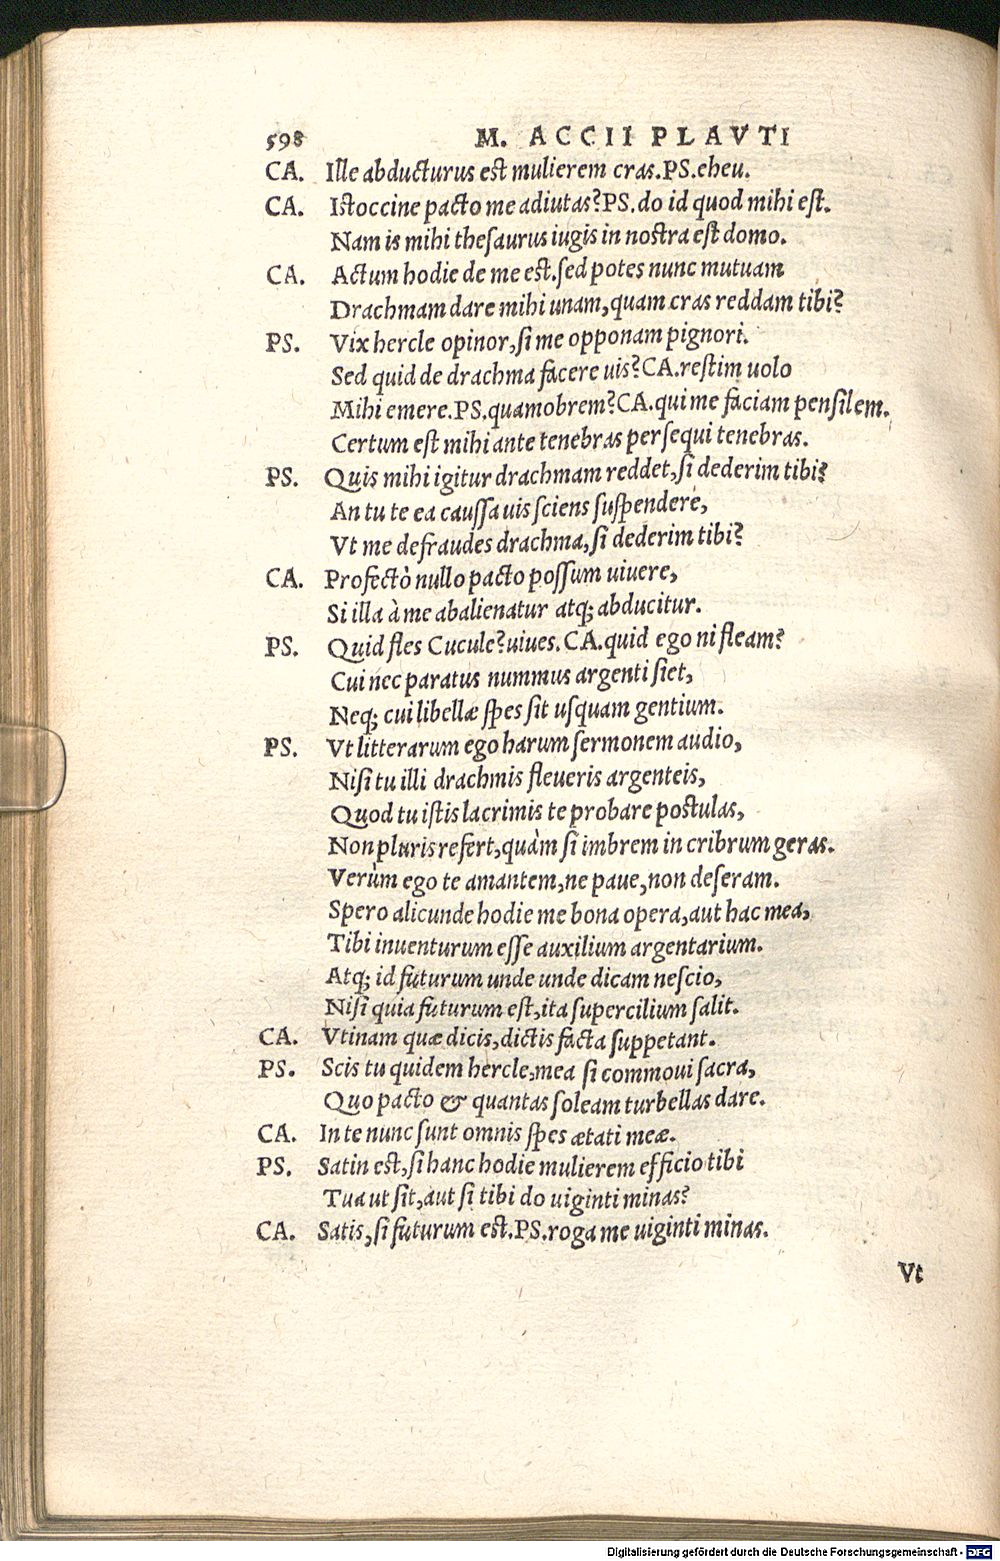 598 M. ACCII PLAVTI
CA. Ille abducturus est mulierem cras.PS.eheu.
CA. Istoccine pacto me adiutas?PS.do id quod mihi est.
Nam is mihi thesaurus iugis in nostra est domo.
CA. Actum hodie de me est.sed potes nunc mutuam
Drachmam dare mihi unam,quam cras reddam tibi?
PS. Vix hercle opinor,si me opponam pignori.
Sed quid de drachma facere uis?CA.restim uolo
Mihi emere.PS.quamobrem?CA.qui me faciam pensilem.
Certum est mihi ante tenebras persequi tenebras.
PS. Quis mihi igitur drachmam reddet,si dederim tibi?
An tu te ea caussa uis sciens suspendere,
Vt me defraudes drachma,si dederim tibi?
CA. Profectò nullo pacto possum uiuere,
Si illa à me abalienatur atq; abducitur.
PS. Quid fles Cucule?uiues.CA.quid ego ni fleam?
Cui nec paratus nummus argenti siet,
Neq; cui libellæ spes sit usquam gentium.
PS. Vt litterarum ego harum sermonem audio,
Nisi tu illi drachmis fleueris argenteis,
Quod tu istis lacrimis te probare postulas,
Non pluris refert,quàm si imbrem in cribrum geras.
Verùm ego te amantem,ne paue,non deseram.
Spero alicunde hodie me bona opera,aut hac mea,
Tibi inuenturum esse auxilium argentarium.
Atq; id futurum unde unde dicam nescio,
Nisi quia futurum est,ita supercilium salit.
CA. Vtinam quæ dicis,dictis facta suppetant.
PS. Scis tu quidem hercle,mea si commoui sacra,
Quo pacto & quantas soleam turbellas dare.
CA. In te nunc sunt omnis spes ætati meæ.
PS. Satin est,si hanc hodie mulierem efficio tibi
Tua ut sit,aut si tibi do uiginti minas?
CA. Satis,si futurum est.PS.roga me uiginti minas.
Vt
Digitalisierung gefördert durch die Deutsche Forschungsgemeinschaft - DFG